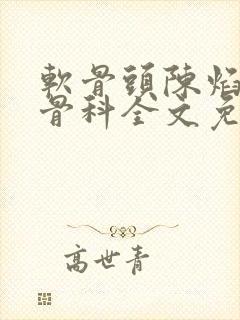 軟骨頭陳焰
骨科全文免
高世青